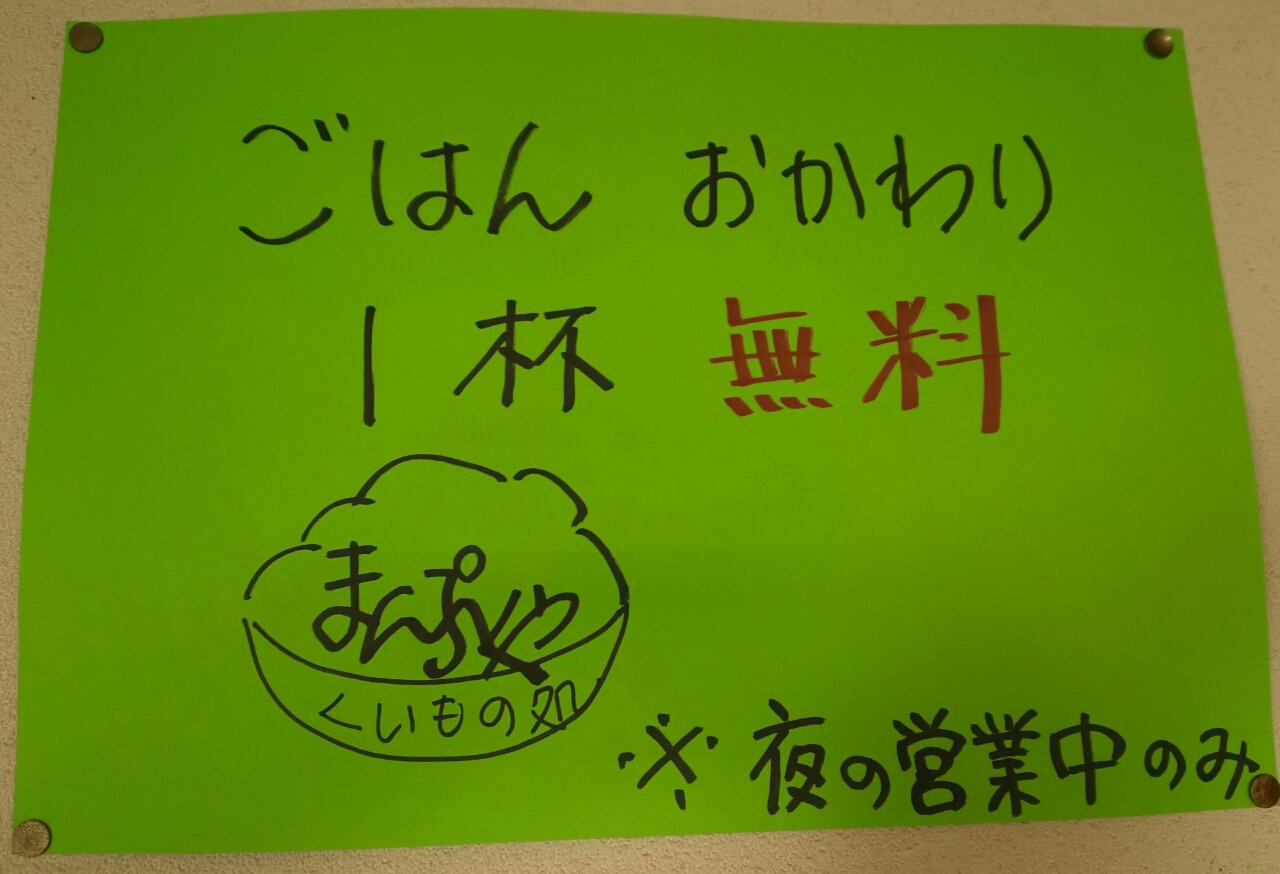 ごはん おかわり
1杯 無料
まんぷくや
くいもの処
※夜の営業中のみ。